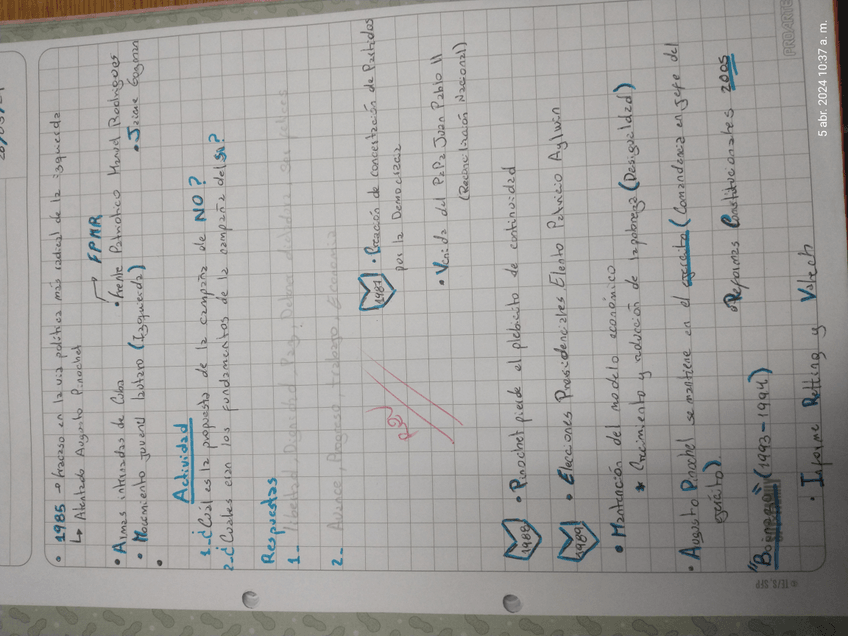 • 1985 → fracaso en la via politica más radical de la izquierda
↳ Atentado Augusto Pinochet → FPMR
• Armas internadas de Cuba • Frente Patriotico Manuel Rodriguez
• Movimiento juvenil lautaro (Izquierda) • Jaime Guzman
•
Actividad
1-¿Cuál es la propuesta de la campaña de NO?
2-¿Cuales son los fundamentos de la campaña del SI?
Respuestas
1- libertad Dignidad Paz,
2- Avance, Progreso, trabajo, Economia
1987 • Creación de concertación de Partidos
por la Democracia
• Venida del Papa Juan Pablo II
(Reconciliación Nacional)
1988 • Pinochet pierde el plebicito de continuidad
1989 • Elecciones Presidenciales Electo Patricio Aylwin
• Mantención del modelo económico
* Crecimiento y reducción de la pobreza (Desigualdad)
• Augusto Pinochet se mantiene en el ejercito (Comandancia en jefe del
ejercito).
• Reformas Constitucionales 2005
"Boinazo" (1993-1994)
• Informe Retting y Valech
PROARTE
©IE/S, SFP
5 abr. 2024 10:37 a. m.